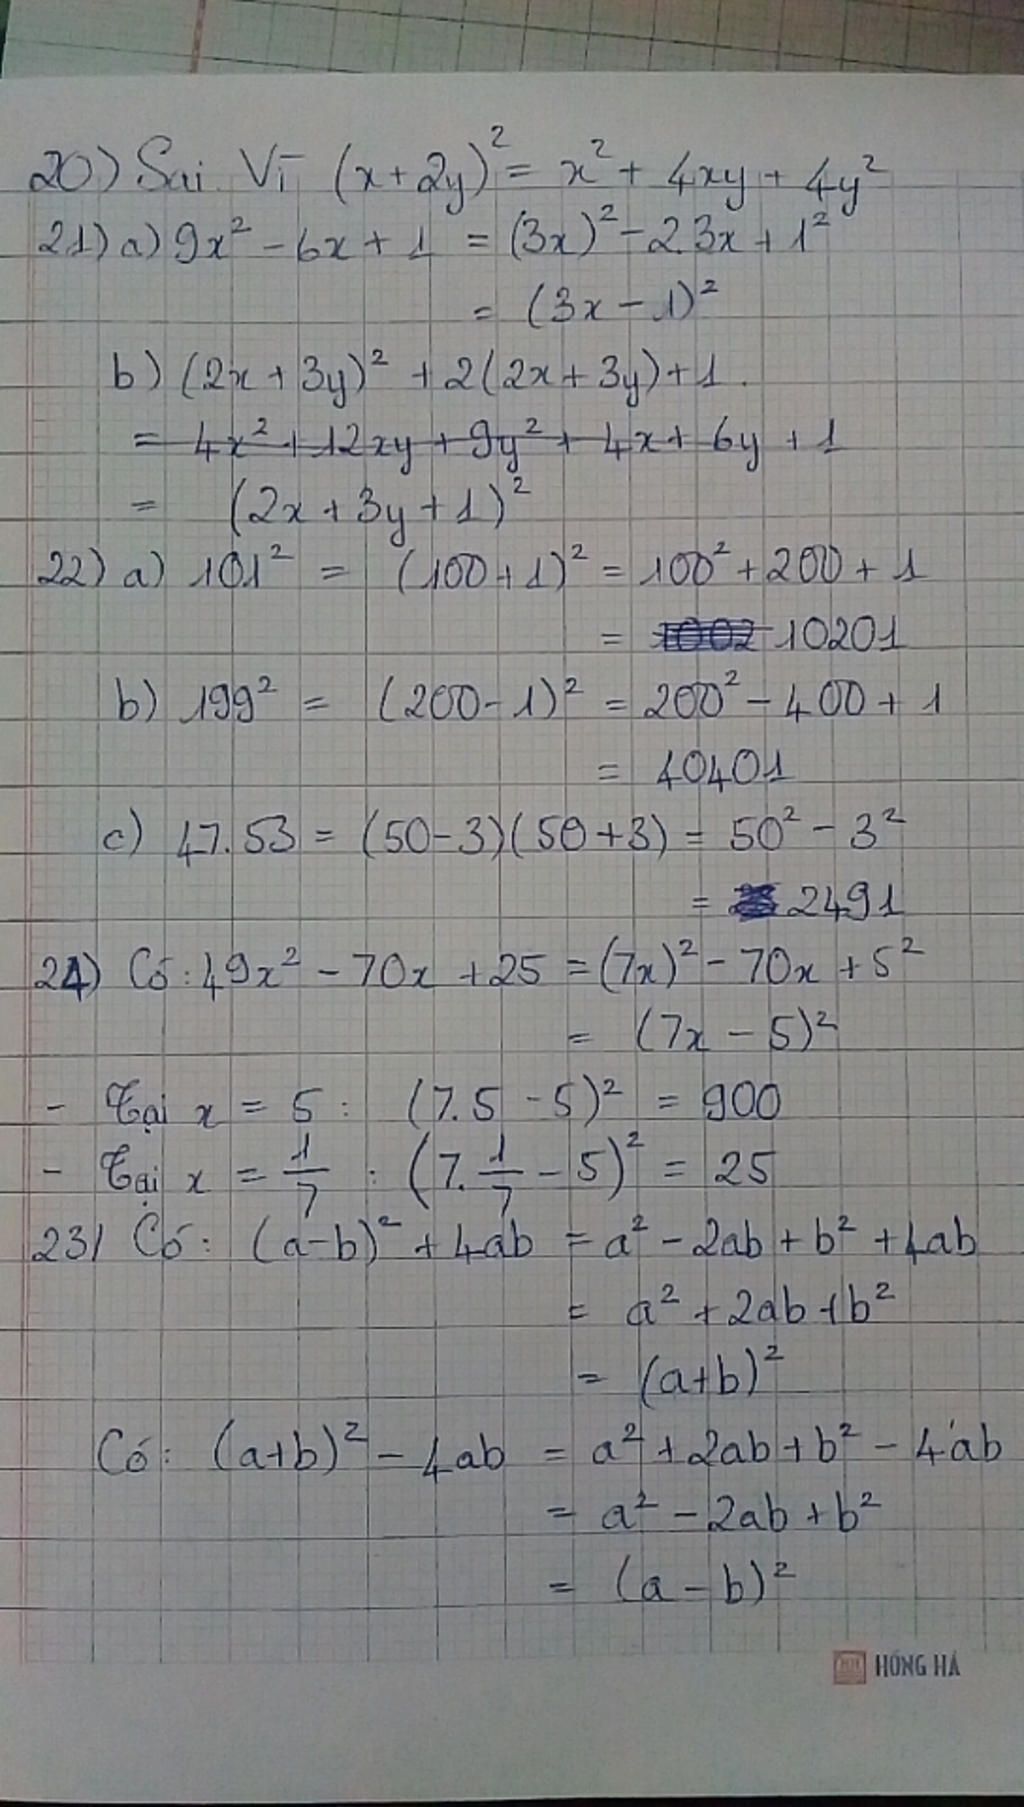 20) Sai. Vì (x+2y)² = x² + 4xy + 4y²
21) a) 9x² - 6x + 1 = (3x)² - 2.3x + 1²
= (3x - 1)²
b) (2x + 3y)² + 2(2x + 3y) + 1.
= 4x² + 12xy + 9y² + 4x + 6y + 1
= (2x + 3y + 1)²
22) a) 101² = (100+1)² = 100² + 200 + 1
= 1002 10201
b) 199² = (200-1)² = 200² - 400 + 1
= 40401
c) 47.53 = (50-3)(50+3) = 50² - 3²
= 2491
24) Có: 49x² - 70x + 25 = (7x)² - 70x + 5²
= (7x - 5)²
- Tại x = 5 : (7.5 - 5)² = 900
- Tại x = 1/7 : (7.1/7 - 5)² = 25
23) Có: (a-b)² + 4ab = a² - 2ab + b² + 4ab
= a² + 2ab + b²
= (a+b)²
Có: (a+b)² - 4ab = a² + 2ab + b² - 4ab
= a² - 2ab + b²
= (a - b)²
HH HỒNG HÀ